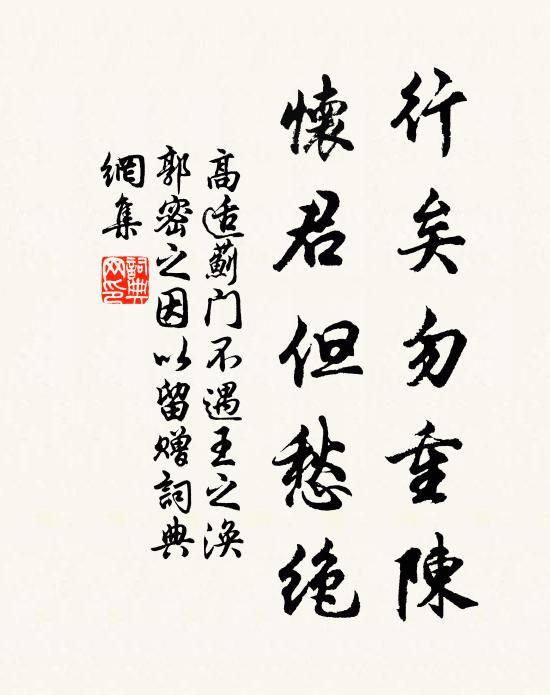 行矣勿重陳
懷君但愁绝
高适薊门不遇王之涣
郭密之因以留贈詞典
網集
詞典
网印